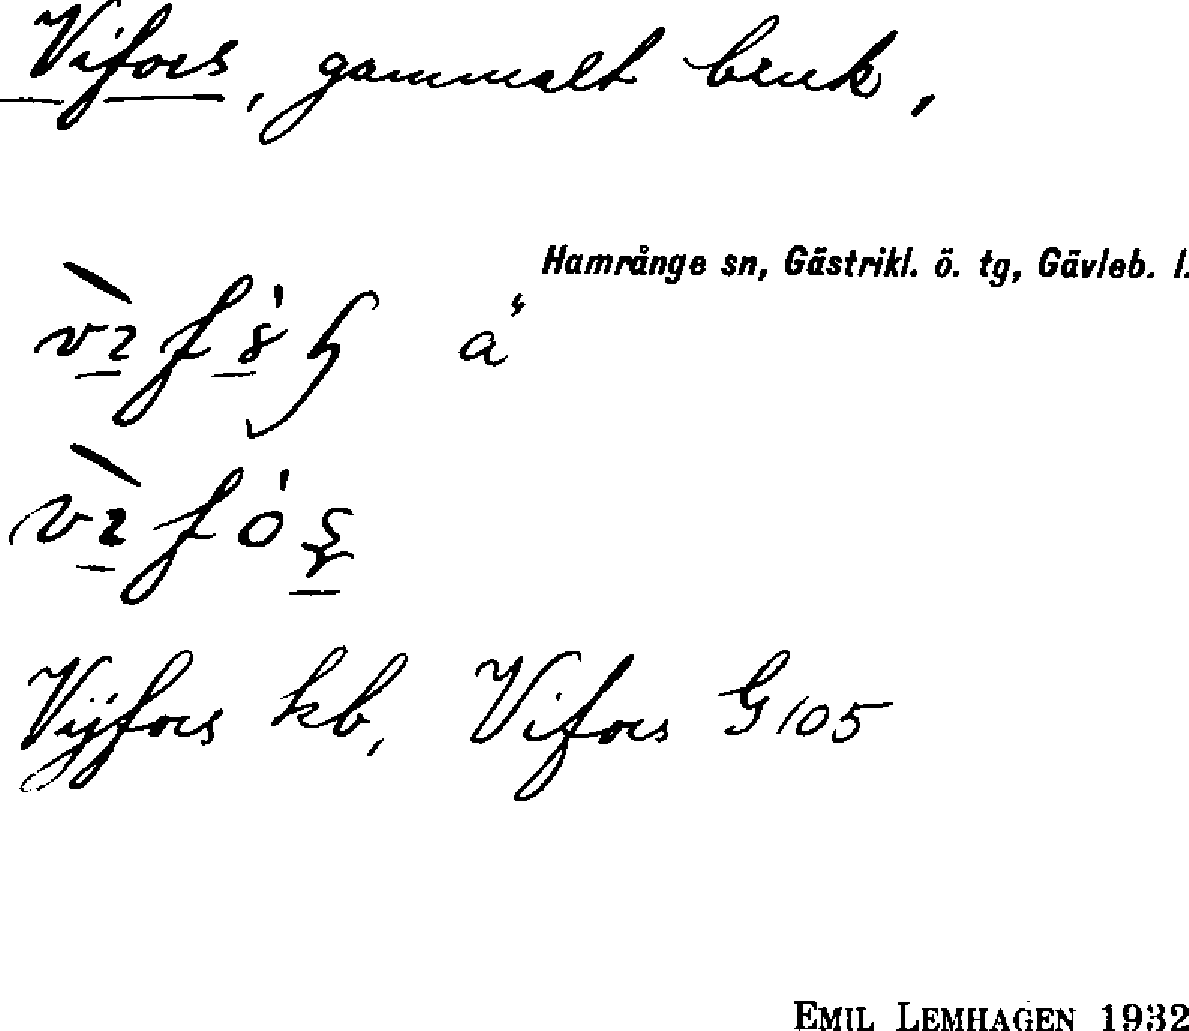 Vifors, gammalt bruk,
Hamrånge sn, Gästrikl. ö. tg, Gävleb. l.
Vijfors kb, Vifors G 105
EMIL LEMHAGEN 1932